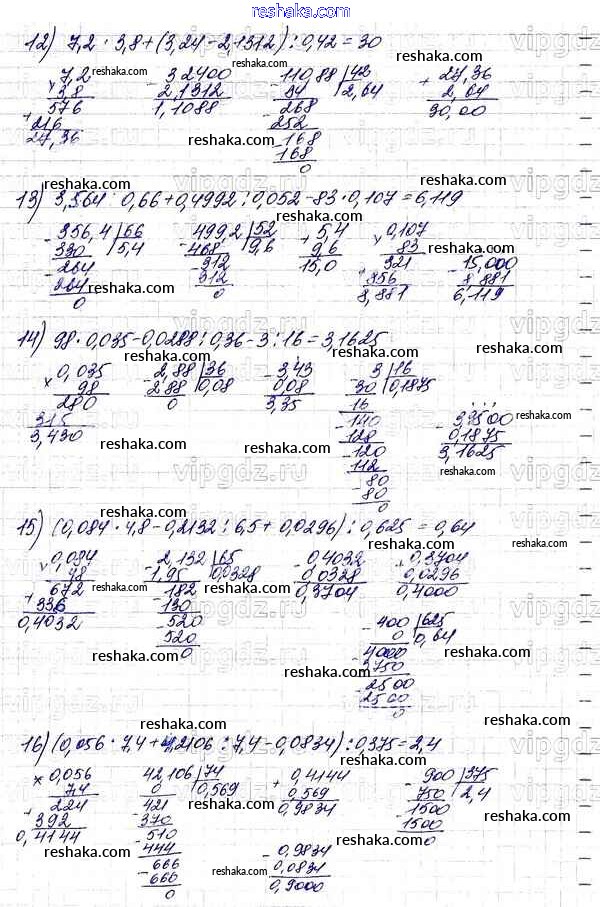 reshaka.com
12) 7,2 · 3,8 + (3,24 - 2,1312) : 0,42 = 30
7,2 3,2400 110,88 | 42 27,36
3,8 2,1312 84 2,64 2,64
576 1,1088 268 30,00
216 252
27,36 168
168
0
13) 3,564 : 0,66 + 0,4992 : 0,052 - 83 · 0,107 = 6,119
356,4 | 66 499,2 | 52 5,4 0,107
330 5,4 468 9,6 9,6 83 15,000
264 312 15,0 321 8,881
264 312 856 6,119
0 0 8,881
14) 98 · 0,035 - 0,0288 : 0,36 - 3 : 16 = 3,1625
0,035 2,88 | 36 3,43 3 | 16
98 2,88 0,08 0,08 30 0,1875
280 0 3,35 16 3,3500
315 140 0,1875
3,430 128 3,1625
120
112
80
80
0
15) (0,084 · 4,8 - 0,2132 : 6,5 + 0,0296) : 0,625 = 0,64
0,084 2,132 | 65 0,4032 0,3704
48 1,95 0,0328 0,0328 0,0296
672 182 0,3704 0,4000
336 130
0,4032 520 400 | 625
520 0 0,64
0 4000
3750
2500
2500
0
16) (0,056 · 7,4 + 4,2106 : 7,4 - 0,0834) : 0,375 = 2,4
0,056 42,106 | 74 0,4144 900 | 375
74 0 0,569 0,569 750 2,4
224 421 0,9834 1500
392 370 1500
0,4144 510 0
444 0,9834
666 0,0834
666 0,9000
0
reshaka.com
vipgdz.ru